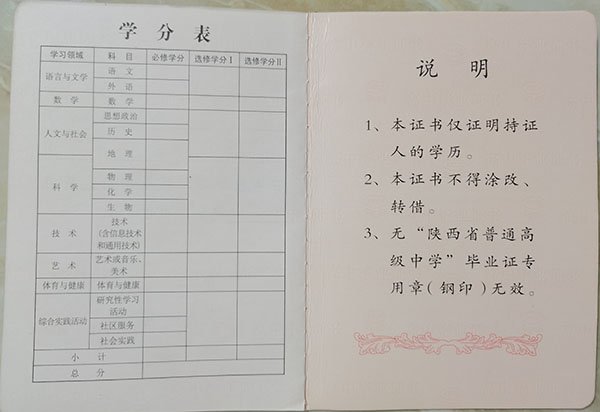 学分表
学习领域 科目 必修学分 选修学分Ⅰ 选修学分Ⅱ
语言与文学 语文
外语
数学 数学
人文与社会 思想政治
历史
地理
科学 物理
化学
生物
技术 技术
(含信息技术
和通用技术)
艺术 艺术或音乐、
美术
体育与健康 体育与健康
综合实践活动 研究性学习
活动
社区服务
社会实践
小计
总分
说明
1、本证书仅证明持证
人的学历。
2、本证书不得涂改、
转借。
3、无“陕西省普通高
级中学”毕业证专
用章(钢印)无效。